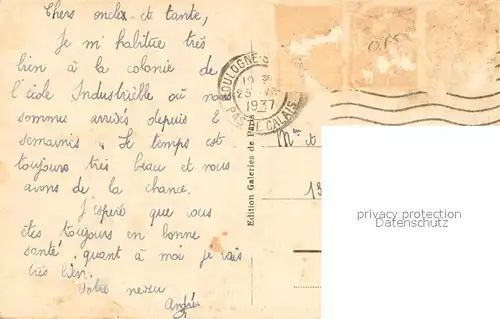 Chers oncle et tante,
Je m'habitue très
bien à la colonie de
l'école Industrielle où nous
sommes arrivés depuis 2
semaines. Le temps est
toujours très beau et nous
avons de la chance.
J'espère que vous
êtes toujours en bonne
santé, quant à moi je vais
très bien.
Votre neveu
André
BOULOGNE-S
19 30
25 VII
1937
PAS DE CALAIS
Edition Galeries de Paris
Mme et
13
privacy protection
Datenschutz